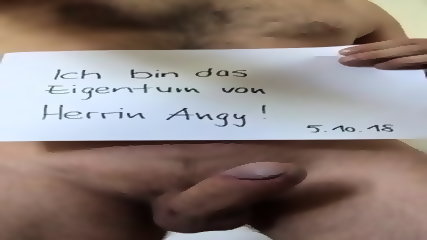 Ich bin das
Eigentum von
Herrin Angy!
5.10.18